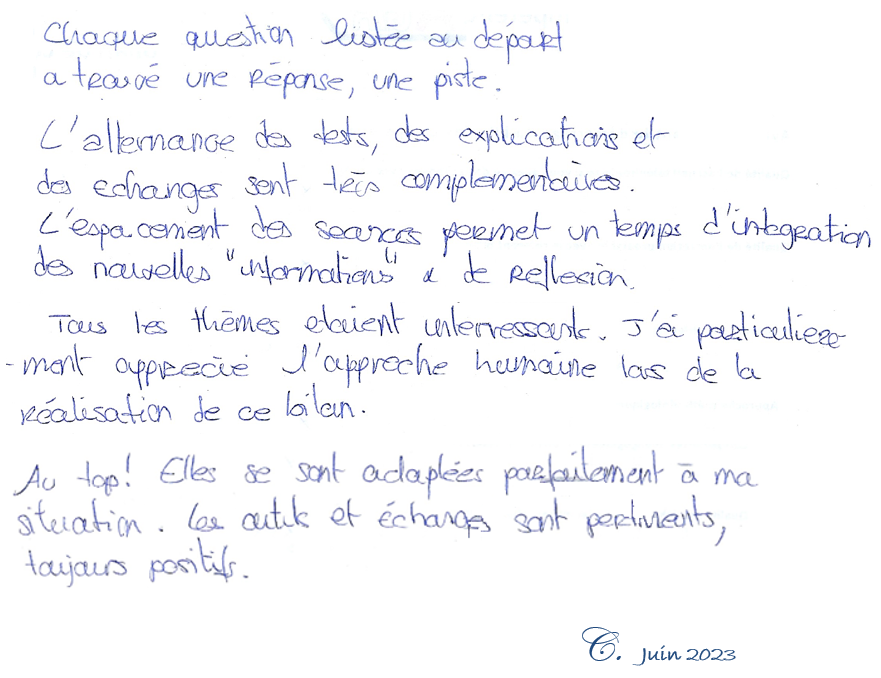 Chaque question listée au départ
a trouvé une réponse, une piste.
L'alternance des tests, des explications et
des echanges sont très complementaires.
L'espacement des seances permet un temps d'intégration
des nouvelles "informations" & de Reflexion.
Tous les thèmes etaient interressants. J'ai particuliere-
-ment apprecié l'approche humaine lors de la
réalisation de ce bilan.
Au top! Elles se sont adaptées parfaitement à ma
situation. Les outils et échanges sont pertinents,
toujours positifs.
C. Juin 2023